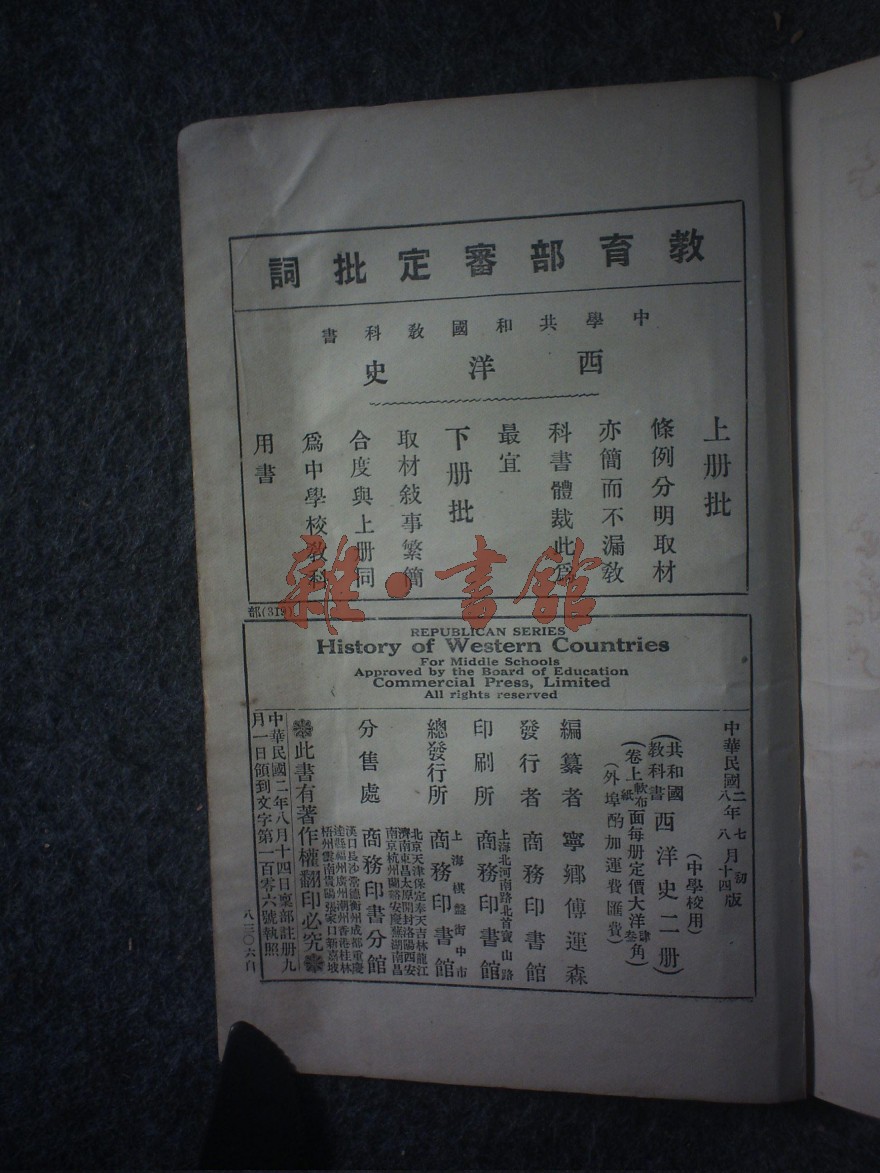 教育部審定批詞
中學共和國敎科書
西洋史
上册批
條例分明取材
亦簡而不漏敎
科書體裁此爲
最宜
下册批
取材敍事繁簡
合度與上册同
爲中學校敎科
用書
部(319)
雜·書館
REPUBLICAN SERIES
History of Western Countries
For Middle Schools
Approved by the Board of Education
Commercial Press, Limited
All rights reserved
中華民國二年七月初版
八年八月十四版
(中學校用)
(共和國教科書西洋史二册)
(卷上軟布紙面每册定價大洋肆叁角)
(外埠酌加運費匯費)
編纂者 寧鄉傅運森
發行者 商務印書館
印刷所 上海北河南路北首寶山路 商務印書館
總發行所 上海棋盤街中市 商務印書館
分售處 商務印書分館
北京天津保定奉天吉林龍江
濟南東昌太原開封洛陽西安
南京杭州蘭谿安慶蕪湖南昌
漢口長沙常德衡州成都重慶
達縣福州廣州潮州香港桂林
梧州雲南貴陽張家口新嘉坡
此書有著作權翻印必究
中華民國二年八月十四日稟部註册九
月一日領到文字第一百零六號執照